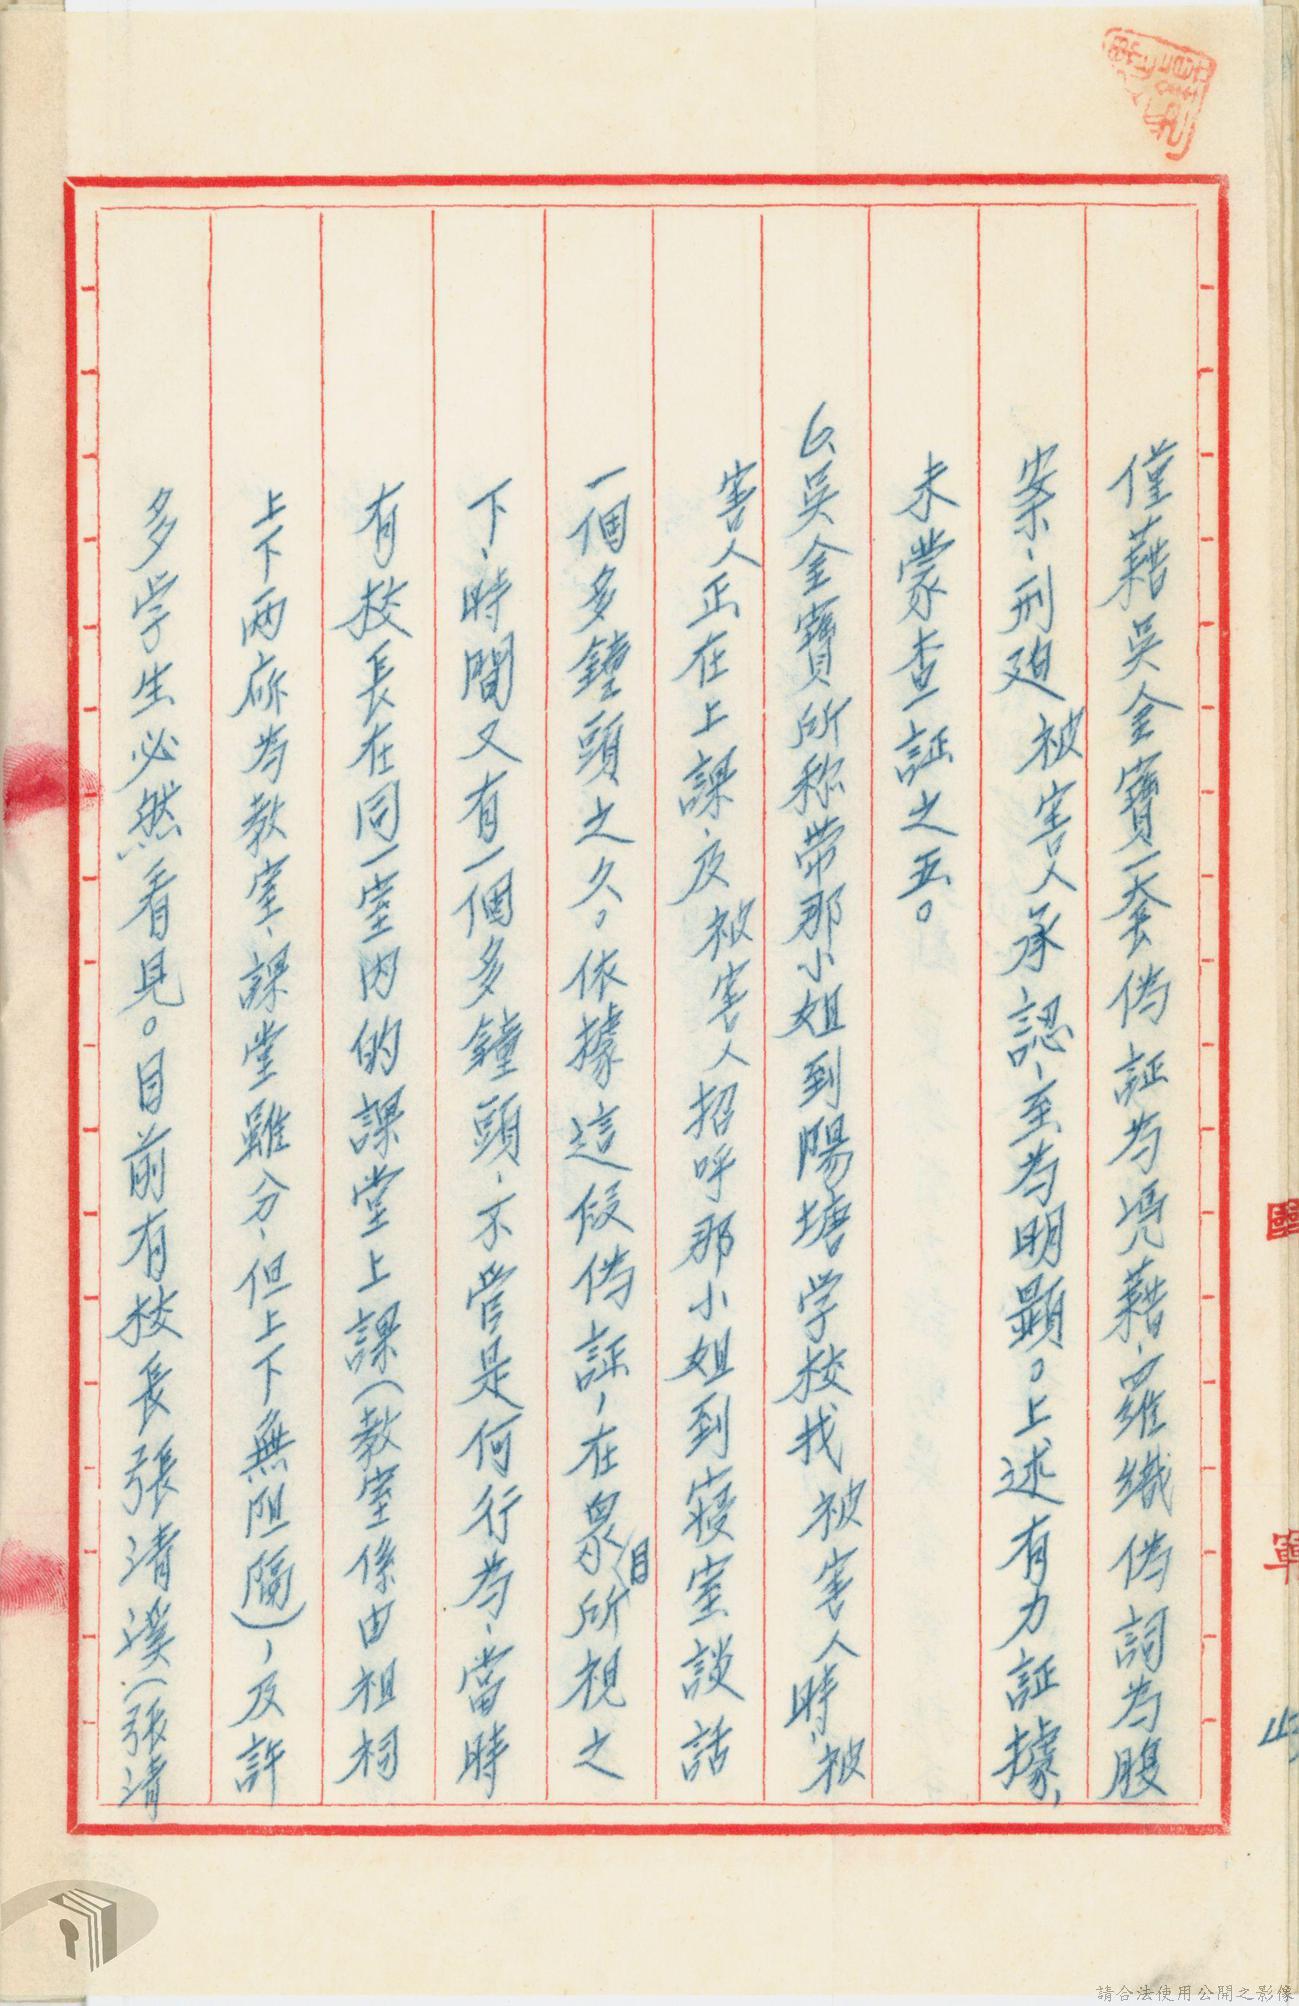 僅藉吳金寶一套偽証為凭藉，羅織偽詞為腹
案，刑廹被害人承認，至為明顯。上述有力証據，
未蒙查証之五。
6.吳金寶所称带那小姐到陽塘学校找被害人時，被
害人正在上課，及被害人招呼那小姐到寢室談話
一個多鐘頭之久。依據這假偽証，在眾目所視之
下，時間又有一個多鐘頭，不管是何行為，當時
有校長在同一室内的課堂上課（教室係由祖祠
上下两所為教室，課堂雖分，但上下無阻隔），及許
多学生必然看見。目前有校長張清溪（張清
請合法使用公開之影像